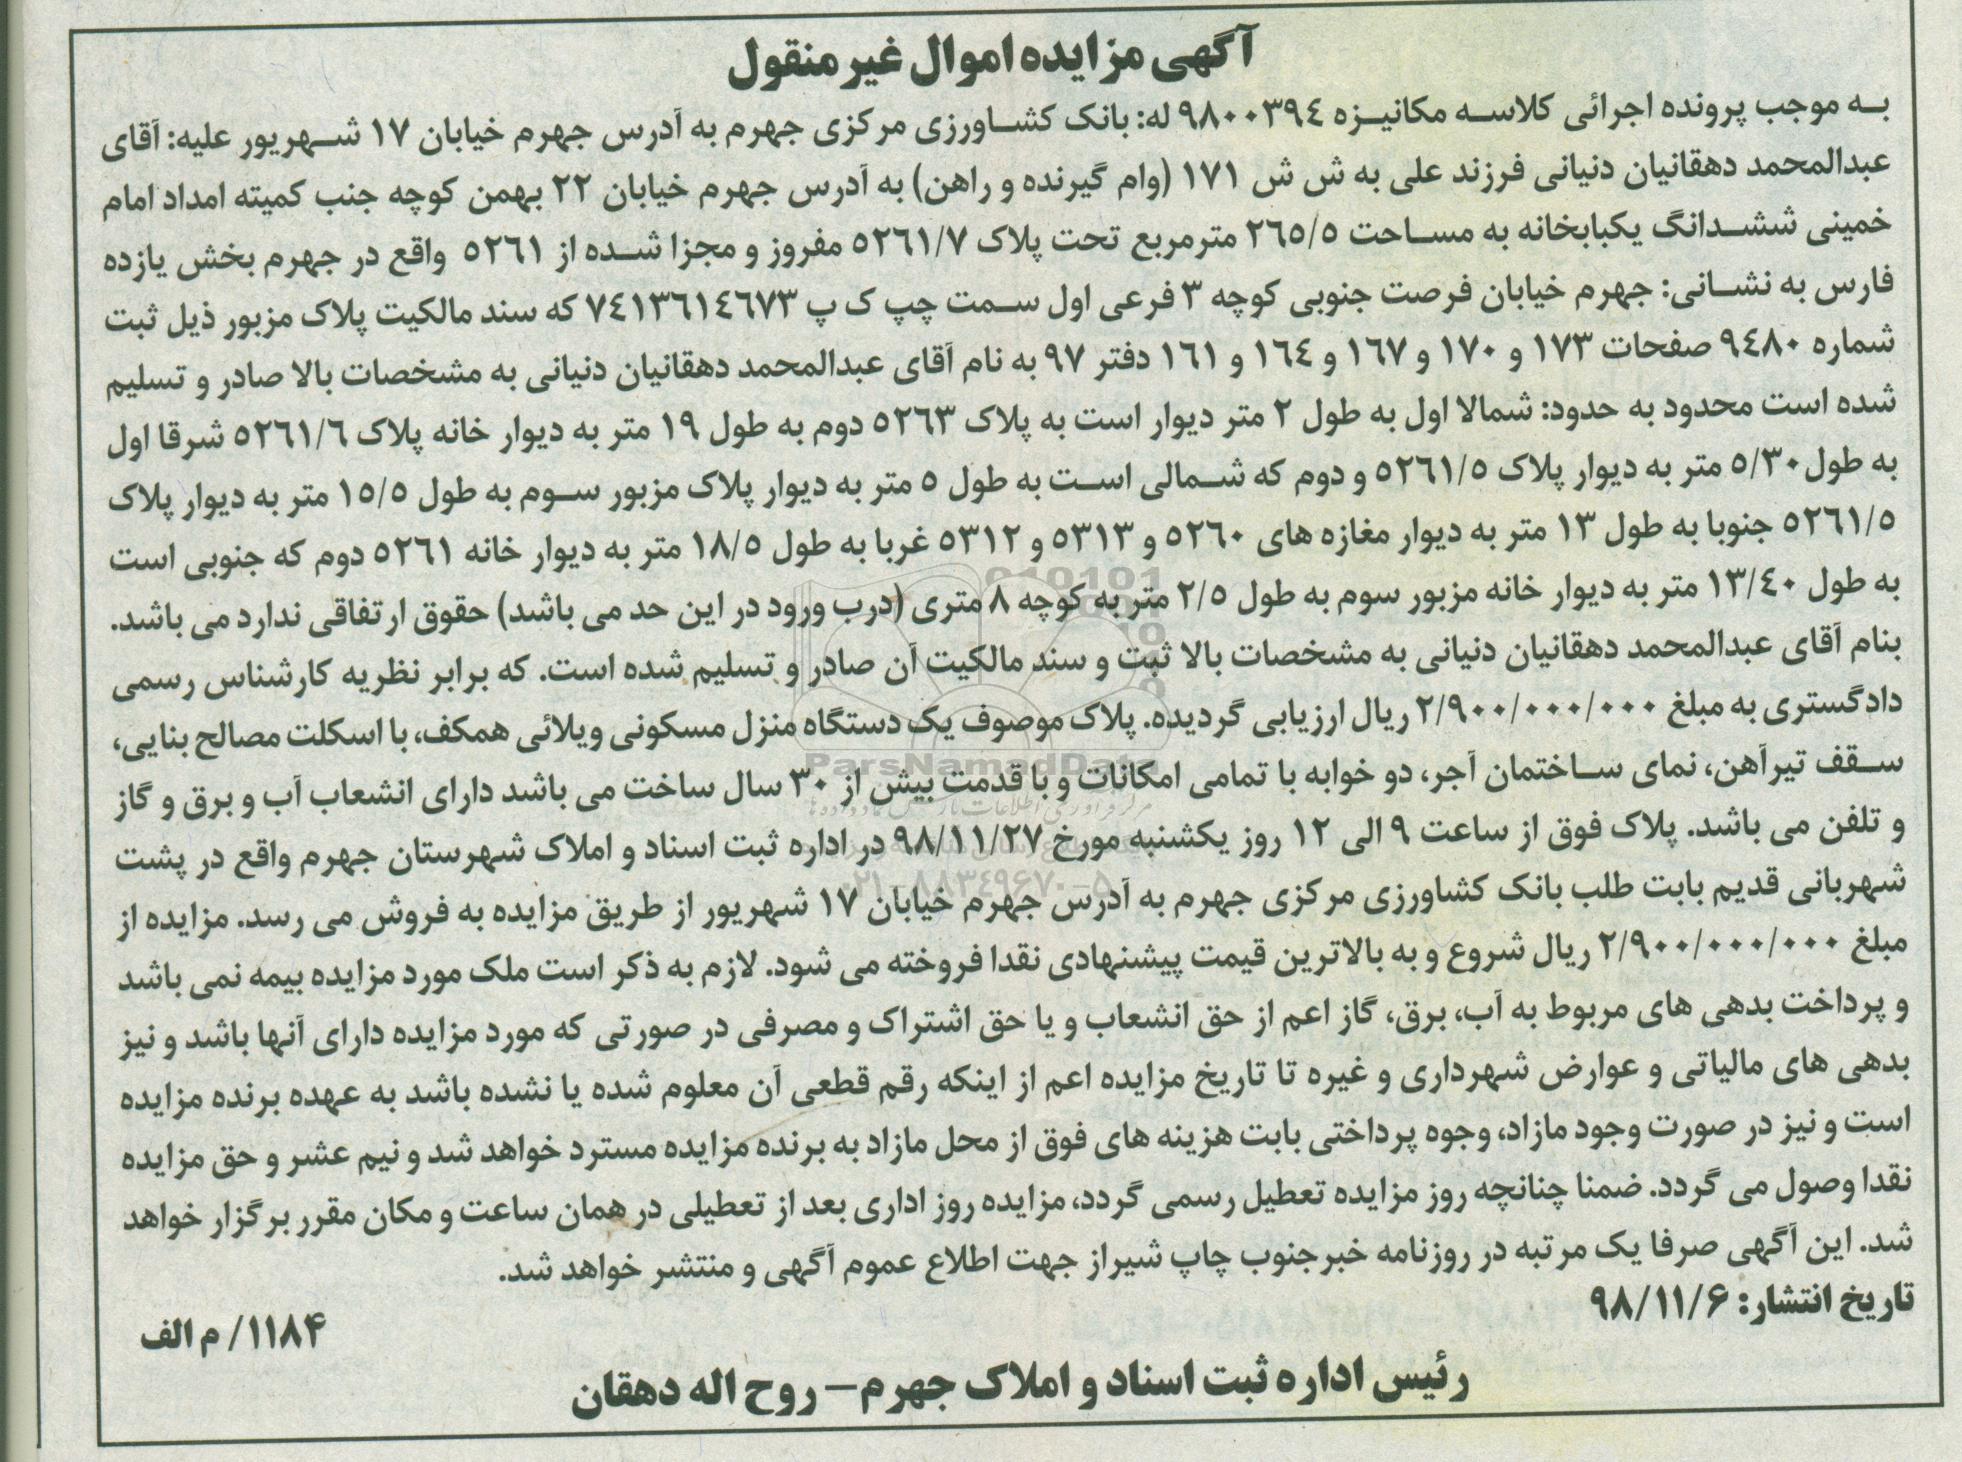 آگهی مزایده اموال غیر منقول
به موجب پرونده اجرائی کلاسه مکانیزه ۹۸۰۰۳۹۴ له: بانک کشاورزی مرکزی جهرم به آدرس جهرم خیابان ۱۷ شهریور علیه: آقای
عبدالمحمد دهقانیان دنیانی فرزند علی به ش ش ۱۷۱ (وام گیرنده و راهن) به آدرس جهرم خیابان ۲۲ بهمن کوچه جنب کمیته امداد امام
خمینی ششدانگ یکبابخانه به مساحت ۲۶۵/۵ مترمربع تحت پلاک ۵۲۶۱/۷ مفروز و مجزا شده از ۵۲۶۱ واقع در جهرم بخش یازده
فارس به نشانی: جهرم خیابان فرصت جنوبی کوچه ۳ فرعی اول سمت چپ ک پ ۷۴۱۳۶۱۴۶۷۳ که سند مالکیت پلاک مزبور ذیل ثبت
شماره ۹۴۸۰ صفحات ۱۷۳ و ۱۷۰ و ۱۶۷ و ۱۶۴ و ۱۶۱ دفتر ۹۷ به نام آقای عبدالمحمد دهقانیان دنیانی به مشخصات بالا صادر و تسلیم
شده است محدود به حدود: شمالا اول به طول ۲ متر دیوار است به پلاک ۵۲۶۳ دوم به طول ۱۹ متر به دیوار خانه پلاک ۵۲۶۱/۶ شرقا اول
به طول۵/۳۰ متر به دیوار پلاک ۵۲۶۱/۵ و دوم که شمالی است به طول ۵ متر به دیوار پلاک مزبور سوم به طول ۱۵/۵ متر به دیوار پلاک
۵۲۶۱/۵ جنوبا به طول ۱۳ متر به دیوار مغازه های ۵۲۶۰ و ۵۳۱۳ و ۵۳۱۲ غربا به طول ۱۸/۵ متر به دیوار خانه ۵۲۶۱ دوم که جنوبی است
به طول ۱۳/۴۰ متر به دیوار خانه مزبور سوم به طول ۲/۵ متر به کوچه ۸ متری (درب ورود در این حد می باشد) حقوق ارتفاقی ندارد می باشد.
بنام آقای عبدالمحمد دهقانیان دنیانی به مشخصات بالا ثبت و سند مالکیت آن صادر و تسلیم شده است. که برابر نظریه کارشناس رسمی
دادگستری به مبلغ ۲/۹۰۰/۰۰۰/۰۰۰ ریال ارزیابی گردیده. پلاک موصوف یک دستگاه منزل مسکونی ویلائی همکف، با اسکلت مصالح بنایی،
سقف تیرآهن، نمای ساختمان آجر، دو خوابه با تمامی امکانات و با قدمت بیش از ۳۰ سال ساخت می باشد دارای انشعاب آب و برق و گاز
و تلفن می باشد. پلاک فوق از ساعت ۹ الی ۱۲ روز یکشنبه مورخ ۹۸/۱۱/۲۷ در اداره ثبت اسناد و املاک شهرستان جهرم واقع در پشت
شهربانی قدیم بابت طلب بانک کشاورزی مرکزی جهرم به آدرس جهرم خیابان ۱۷ شهریور از طریق مزایده به فروش می رسد. مزایده از
مبلغ ۲/۹۰۰/۰۰۰/۰۰۰ ریال شروع و به بالاترین قیمت پیشنهادی نقدا فروخته می شود. لازم به ذکر است ملک مورد مزایده بیمه نمی باشد
و پرداخت بدهی های مربوط به آب، برق، گاز اعم از حق انشعاب و یا حق اشتراک و مصرفی در صورتی که مورد مزایده دارای آنها باشد و نیز
بدهی های مالیاتی و عوارض شهرداری و غیره تا تاریخ مزایده اعم از اینکه رقم قطعی آن معلوم شده یا نشده باشد به عهده برنده مزایده
است و نیز در صورت وجود مازاد، وجوه پرداختی بابت هزینه های فوق از محل مازاد به برنده مزایده مسترد خواهد شد و نیم عشر و حق مزایده
نقدا وصول می گردد. ضمنا چنانچه روز مزایده تعطیل رسمی گردد، مزایده روز اداری بعد از تعطیلی در همان ساعت و مکان مقرر برگزار خواهد
شد. این آگهی صرفا یک مرتبه در روزنامه خبرجنوب چاپ شیراز جهت اطلاع عموم آگهی و منتشر خواهد شد.
تاریخ انتشار: ۹۸/۱۱/۶
۱۱۸۴/ م الف
رئیس اداره ثبت اسناد و املاک جهرم– روح اله دهقان
ParsNamadData
۰۲۱-۸۸۳۴۹۶۷۰-۵